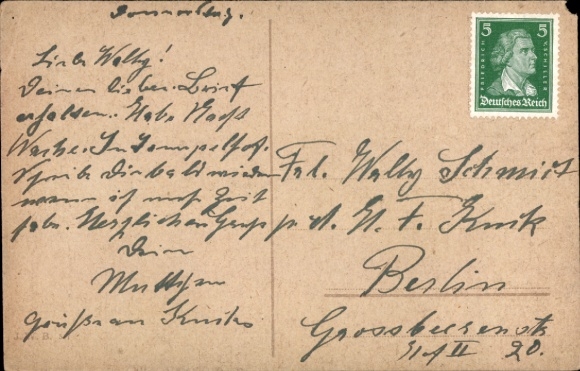 Donnerstag.
Liebe Wally!
Deinen lieben Brief
erhalten. Habe Nacht
Wache. In Tempelhof.
Schreib Dir bald wieder
wenn ich mehr Zeit
habe. Herzlichen Gruss
Dein
Gruß an Kniks
5 5
FRIEDRICH SCHILLER
Deutsches Reich
Frl. Wally Schmidt
p. A. H. F. Knik
Berlin
Grossbeerenstr
II 20.